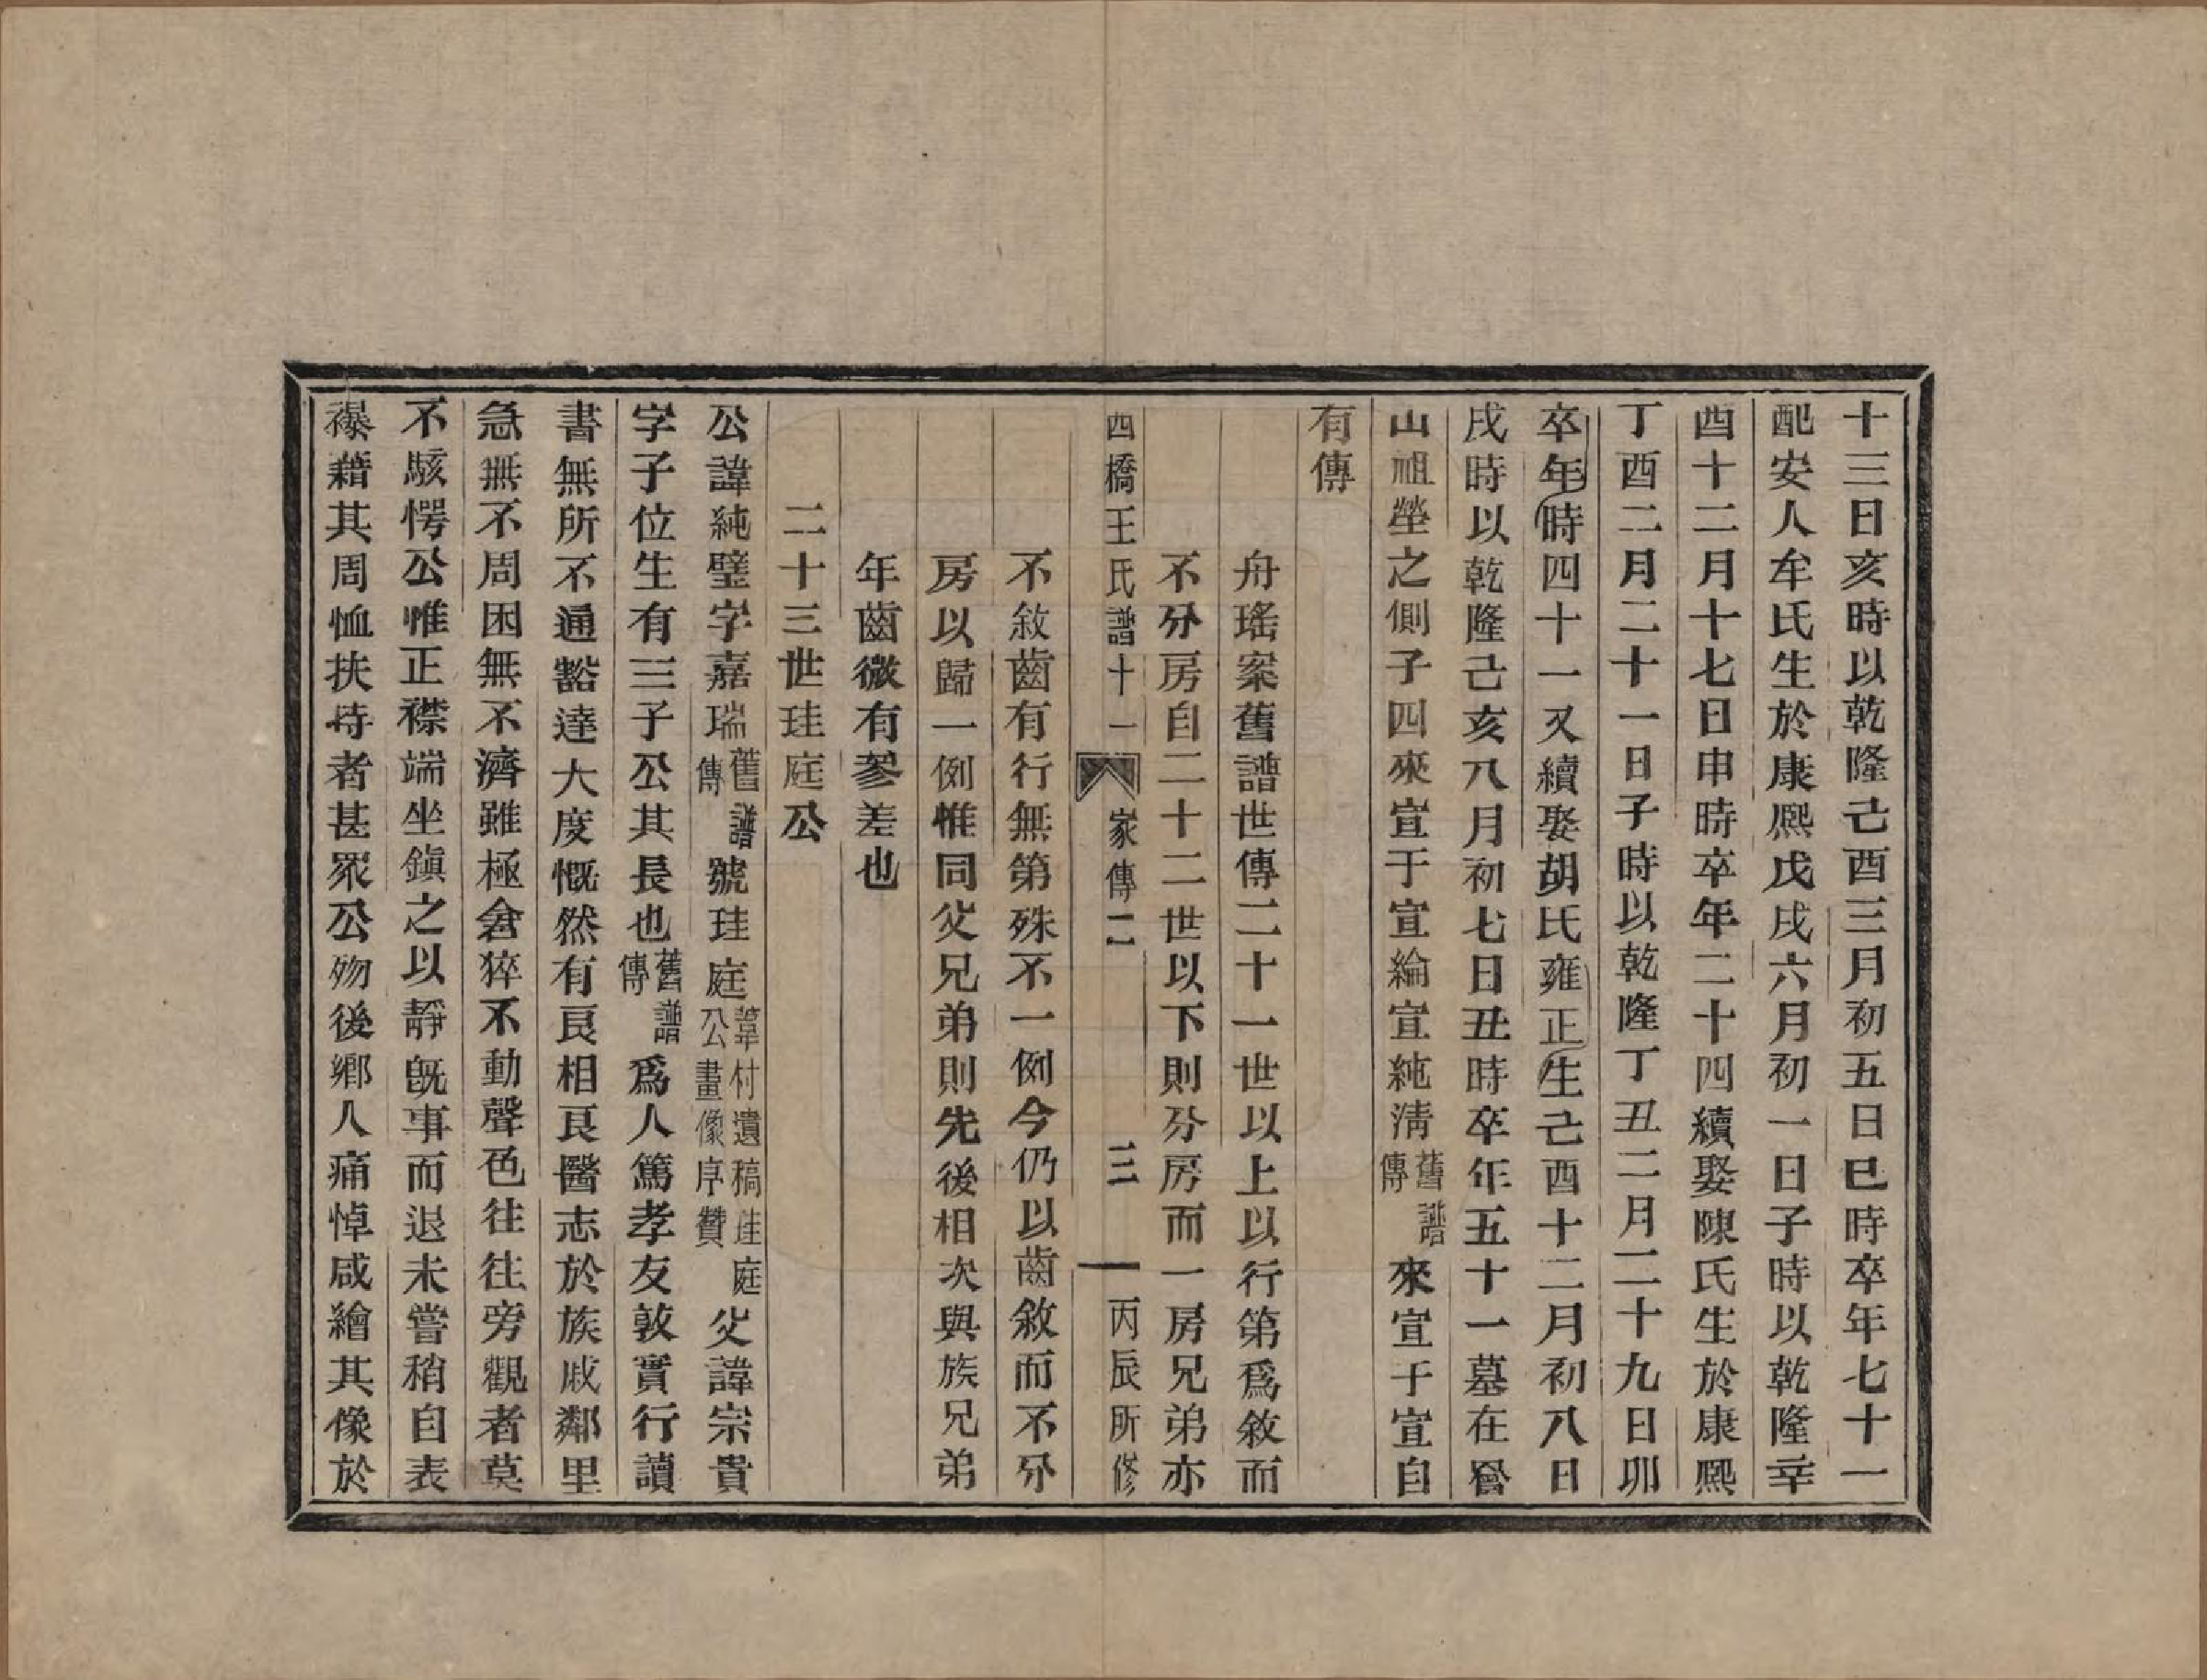 十三日亥時以乾隆己酉三月初五日巳時卒年七十一
配安人牟氏生於康熙戊戌六月初一日子時以乾隆辛
酉十二月十七日申時卒年二十四續娶陳氏生於康熙
丁酉二月二十一日子時以乾隆丁丑二月二十九日卯
卒年時四十一又續娶胡氏雍正生己酉十二月初八日
戌時以乾隆己亥八月初七日丑時卒年五十一墓在醟
山祖塋之側子四來宣于宣綸宣純淸舊譜傳來宣于宣自
有傳
舟瑤案舊譜世傳二十一世以上以行第爲敘而
不分房自二十二世以下則分房而一房兄弟亦
西橋王氏譜十一 家傳二 三 丙辰所修
不敘齒有行無第殊不一例今仍以齒敘而不分
房以歸一例惟同父兄弟則先後相次與族兄弟
年齒微有參差也
二十三世珪庭公
公諱純璧字嘉瑞舊譜傳號珪庭葦村遺稿珪庭公畫像序贊父諱宗貴
字子位生有三子公其長也舊譜傳爲人篤孝友敦實行讀
書無所不通豁達大度慨然有良相良醫志於族戚鄰里
急無不周困無不濟雖極倉猝不動聲色往往旁觀者莫
不駭愕公惟正襟端坐鎭之以靜旣事而退未嘗稍自表
襮藉其周恤扶持者甚眾公歿後鄉人痛悼咸繪其像於